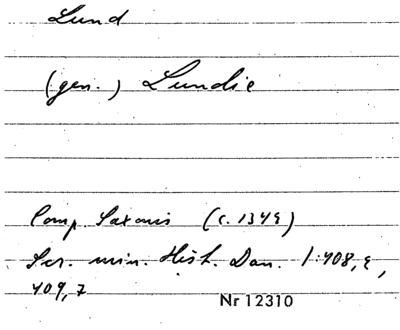 Lund
(gen.) Lundie
Comp. Saxonis (c. 1345)
Scr. min. Hist. Dan. 1:408, 5,
409, 7
Nr 12310